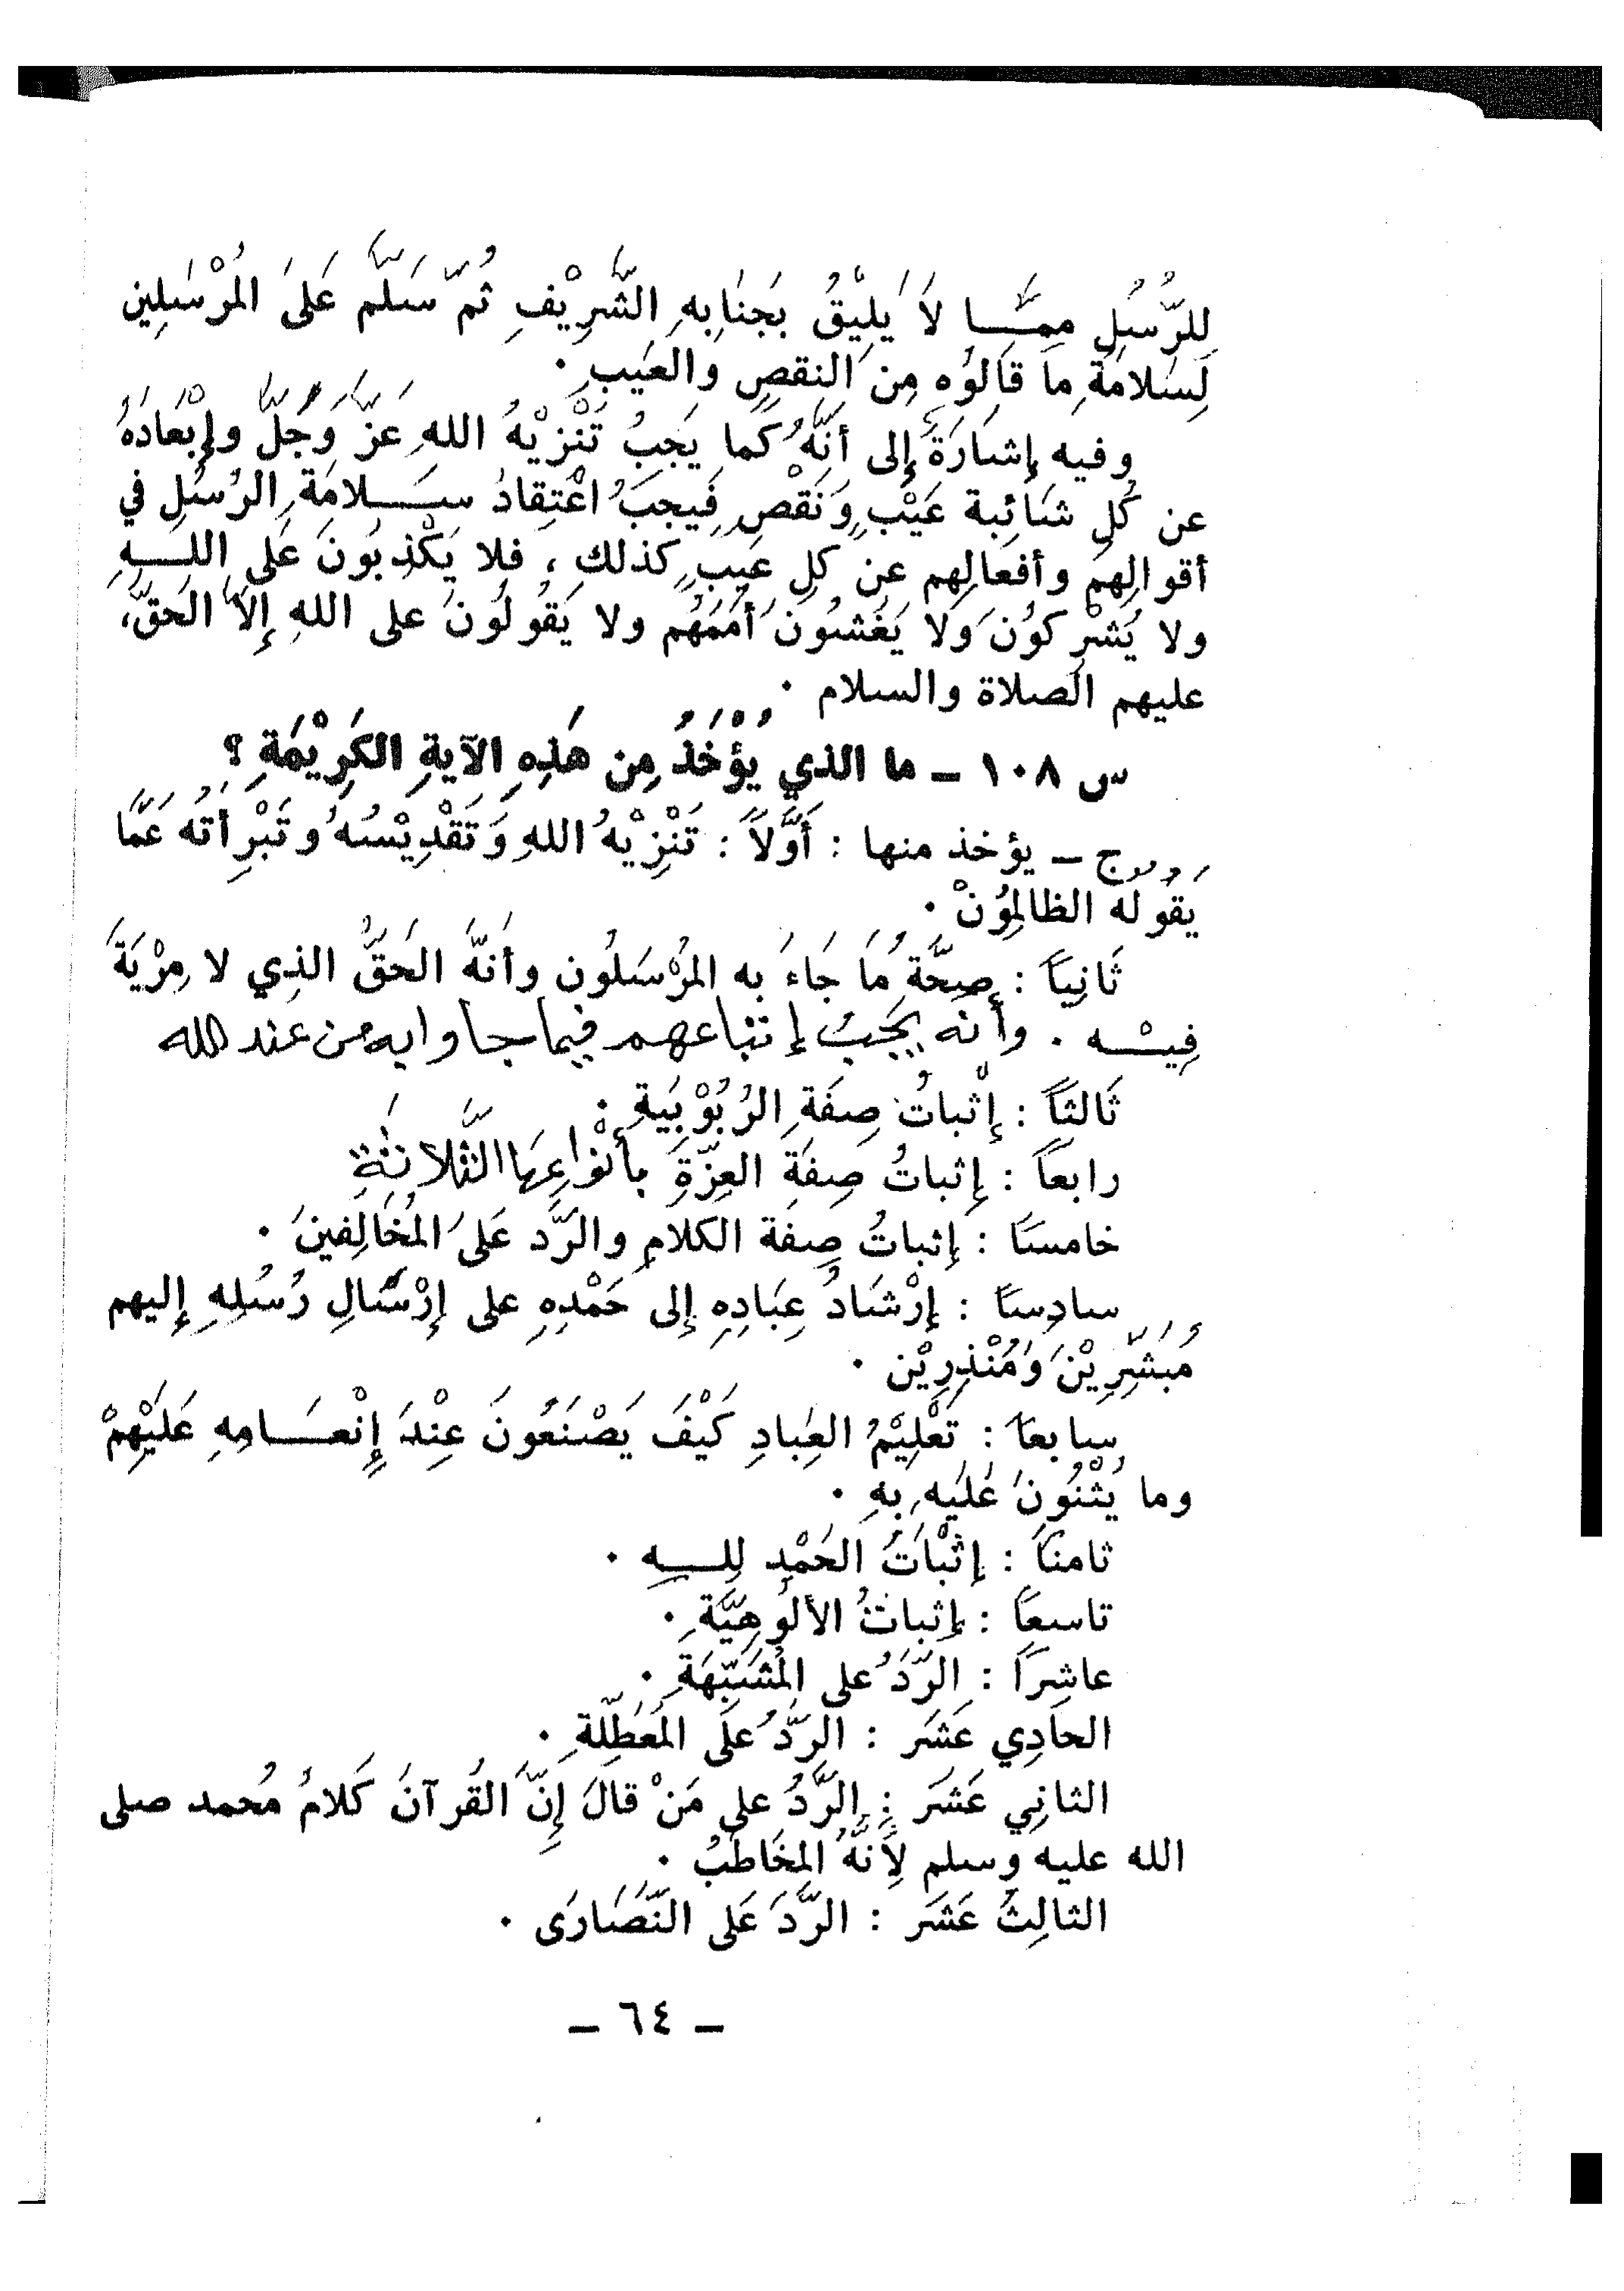 لِلرُّسُلِ مِمَّـا لَا يَلِيْقُ بِجَنَابِهِ الشَّرِيْفِ ثُمَّ سَلَّمَ عَلَى المُرْسَلِين
لِسَلامَةِ مَا قَالُوْه مِن النقصِ والعَيبِ .
وفيه إشارَةٌ إلى أنَّهُ كَما يَجِبُ تَنْزِيْهُ اللهِ عَزَّ وَجَلَّ وإبْعَادُهُ
عن كُلِ شَائِبة عَيْبٍ وَنَقْصٍ فَيجبُ اعْتِقادُ سَـلامَةِ الرُسُلِ في
أقوالِهِم وأفعَالِهِم عن كلِ عَيبٍ كذلك ، فلا يَكْذِبُونَ عَلى اللـهِ
ولا يُشْرِكوُن وَلا يَغُشوُنَ أُمَمَهُم ولا يَقُولُونَ على اللهِ إلَّا الحَقَّ،
عليهم الصلاة والسلام .
س ١٠٨ – ما الذي يُؤْخَذُ مِن هَذِهِ الآيةِ الكَرِيْمَةِ ؟
ج – يؤخذ منها : أَوَّلاً : تَنْزِيْهُ اللهِ وَتَقْدِيْسُهُ وتَبْرِأتُه عَمَّا
يَقُولُه الظالِمُوْنْ .
ثَانِيَاً : صِحَّةِ مَا جَاءَ به المُرْسَلُون وأنَّهُ الحَقُّ الذِي لا مِرْيَةَ
فِيـْه . وأنه يَجِبُ إتباعهم فيما جاوا به من عند الله
ثَالثاً : إثْباتُ صِفَةِ الرُبُوْبِيَةِ .
رابعاً : إثباتُ صِفَةِ العِزّةِ بأنْواعِهَا الثَّلاثَةِ
خامسَاً : إثباتُ صِفَة الكلامِ والرَّد عَلى المُخَالِفينَ .
سادِسَاً : إرْشَادُ عِبَادِهِ إلى حَمْدِهِ على إرْسَالِ رُسُلِهِ إليهم
مُبَشِّرِيْنَ وَمُنْذِرِيْن .
سابعَاً : تَعْلِيْمُ العِبادِ كَيْفَ يَصْنَعُونَ عِنْدَ إنْعـامِهِ عَلَيْهِمْ
وما يُثْنُونَ عَليه بِهِ .
ثامنَاً : إثْبَاتُ الحَمْدِ لِلـهِ .
تاسعاً : إثباتُ الألُوهِيَّةِ .
عاشِرَاً : الرَّدُ على المُشَبِّهَةِ .
الحادِي عَشَر : الرَّدُ عَلَى المُعَطِّلَةِ .
الثانِي عَشَر : الرَّدُ على مَنْ قالَ إنَّ القُرآنَ كَلامُ مُحمد صلى
الله عليه وسلم لِأَنَّهُ المخَاطَبُ .
الثالِثُ عَشَر : الرَّدُ عَلى النَّصَارَى .
– ٦٤ –